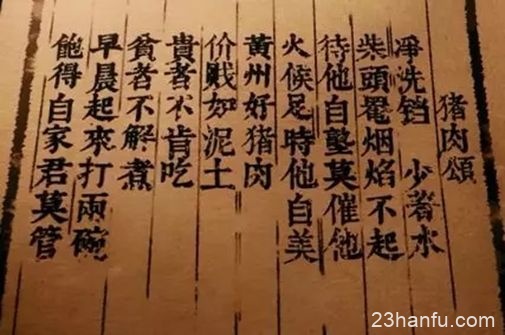 猪肉頌
凈洗铛 少著水
柴頭罨烟焰不起
待他自塾莫催他
火候足時他自美
黃州好猪肉
价贱如泥土
貴者不肯吃
貧者不解煮
早晨起來打兩碗
飽得自家君莫管
23hanfu.com